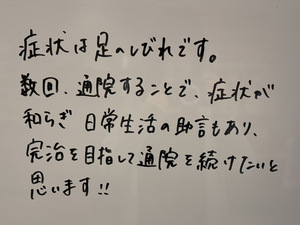 症状は足のしびれです。
数回、通院することで、症状が
和らぎ 日常生活の助言もあり、
完治を目指して通院を続けたいと
思います!!